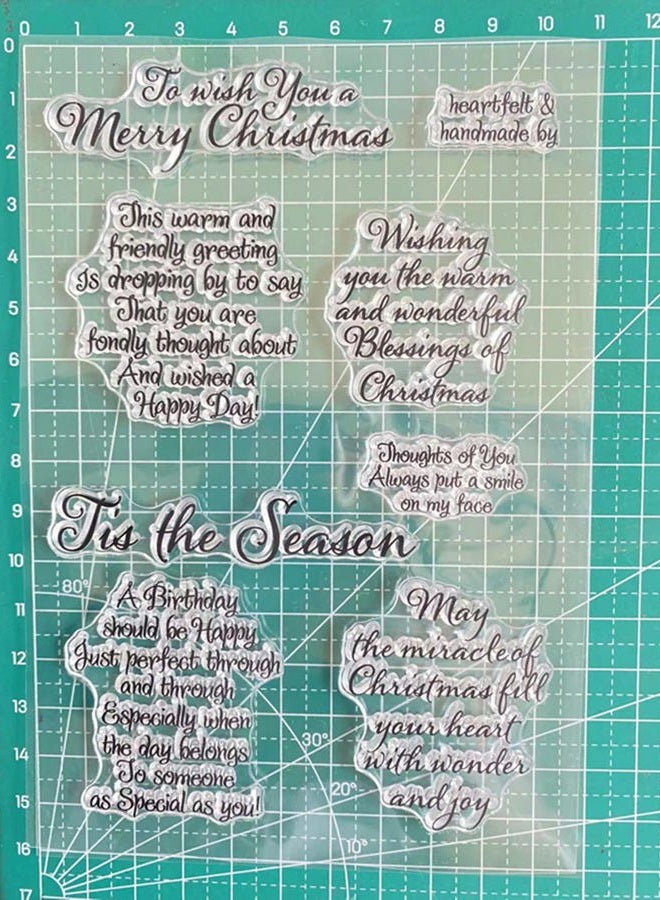 0 1 2 3 4 5 6 7 8 9 10 11 12
0
1
2
3
4
5
6
7
8
9
10
11
12
13
14
15
16
17
To wish You a
Merry Christmas
heartfelt &
handmade by
This warm and
friendly greeting
Is dropping by to say
That you are
fondly thought about
And wished a
Happy Day!
Wishing
you the warm
and wonderful
Blessings of
Christmas
Thoughts of You
Always put a smile
on my face
Tis the Season
A Birthday
should be Happy
Just perfect through
and through
Especially when
the day belongs
To someone
as Special as you!
May
the miracle of
Christmas fill
your heart
with wonder
and joy
80°
30°
20°
10°